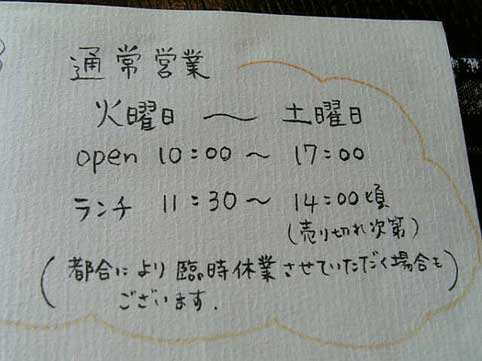 通常営業
火曜日 〜 土曜日
open 10:00〜 17:00
ランチ 11:30〜 14:00頃
(売り切れ次第)
(都合により臨時休業させていただく場合も
ございます.)